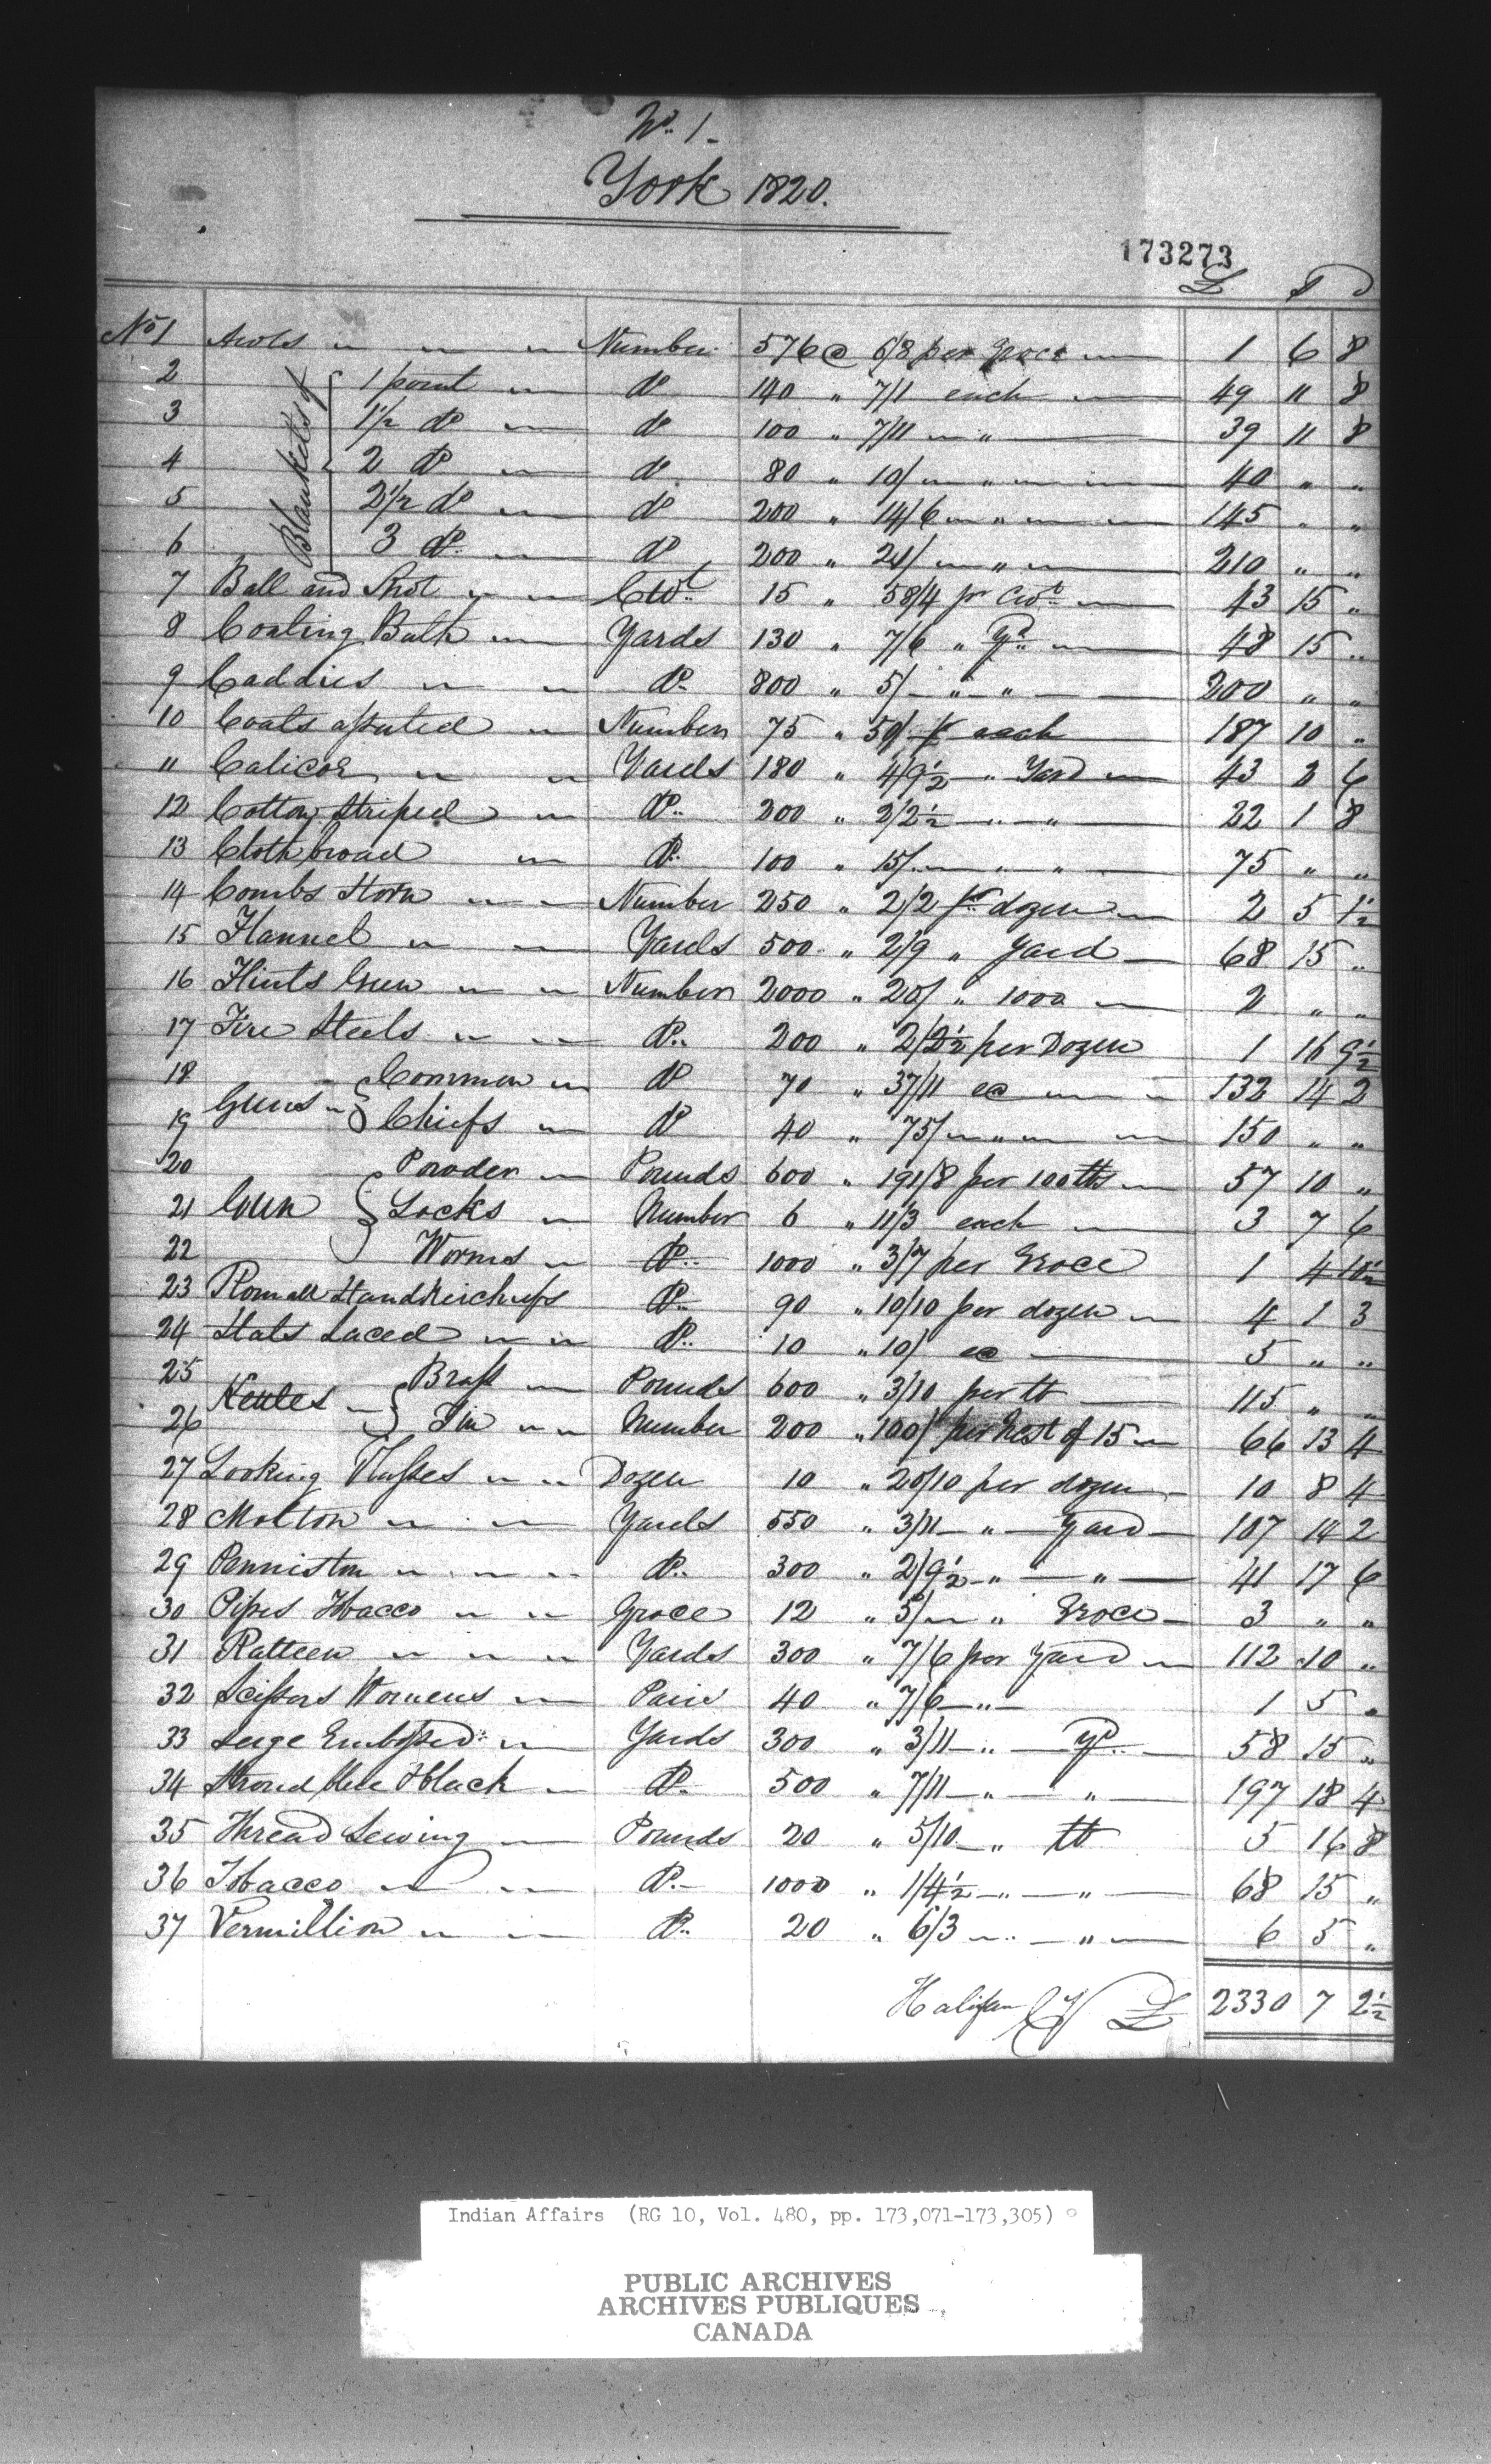 No. 1
York 1820.
173273
£ S D
No 1 Awls " " " Number 576 @ 6/8 per Groce 1 6 8
2 Blankets of { 1 point " do 140 " 7/1 each 49 11 8
3 1½ do " do 100 " 7/11 " " 39 11 8
4 2 do " do 80 " 10/ " " 40 " "
5 2½ do " do 200 " 14/6 " " 145 " "
6 3 do " do 200 " 21/ " " 210 " "
7 Ball and Shot " " Cwt 15 " 58/4 pr Cwt 43 15 "
8 Coating Bath " Yards 130 " 7/6 " Yd 48 15 "
9 Caddies " " do 800 " 5/ " " 200 " "
10 Coats assorted " Number 75 " 50/ each 187 10 "
" Calicoe " " Yards 180 " 4/9½ " Yard 43 2 6
12 Cotton Striped " do 200 " 2/2½ " " 22 1 8
13 Cloth broad " do 100 " 15/ " " 75 " "
14 Combs Horn " " Number 250 " 2/2 pr dozen 2 5 1½
15 Flannel " " Yards 500 " 2/9 " Yard 68 15 "
16 Flints Gun " " Number 2000 " 20/ " 1000 2 " "
17 Fire Steels " " do 200 " 2/2½ per Dozen 1 16 9½
18 Guns { Common " do 70 " 37/11 ea 132 14 2
19 Chiefs " do 40 " 75/ " " 150 " "
20 Powder " Pounds 600 " 191/8 per 100 lbs 57 10 "
21 Gun { Locks " Number 6 " 11/3 each 3 7 6
22 Worms " do 1000 " 3/7 per Groce 1 4 10½
23 Romall Handkerchiefs do 90 " 10/10 per dozen 4 1 3
24 Hats Laced " " do 10 " 10/ ea 5 " "
25 Kettles { Brass " Pounds 600 " 3/10 per lb 115 " "
26 Tin " " Number 200 " 100/ per Nest of 15 66 13 4
27 Looking Glasses " " Dozen 10 " 20/10 per dozen 10 8 4
28 Molton " " Yards 550 " 3/11 " Yard 107 14 2
29 Penniston " " " do 300 " 2/9½ " " 41 17 6
30 Pipes Tobacco " " Groce 12 " 5/ " Groce 3 " "
31 Ratteen " " " Yards 300 " 7/6 per Yard 112 10 "
32 Scissors Womens " Pairs 40 " 7/6 " 1 5 "
33 Serge Embossed " Yards 300 " 3/11 " Yd 58 15 "
34 Stroud blue & black " do 500 " 7/11 " " 197 18 4
35 Thread Sewing " Pounds 20 " 5/10 " lb 5 16 8
36 Tobacco " " do 1000 " 1/4½ " " 68 15 "
37 Vermillion " " do 20 " 6/3 " " 6 5 "
Halifax Cy £ 2330 7 2½
Indian Affairs (RG 10, Vol. 480, pp. 173,071-173,305)
PUBLIC ARCHIVES
ARCHIVES PUBLIQUES
CANADA